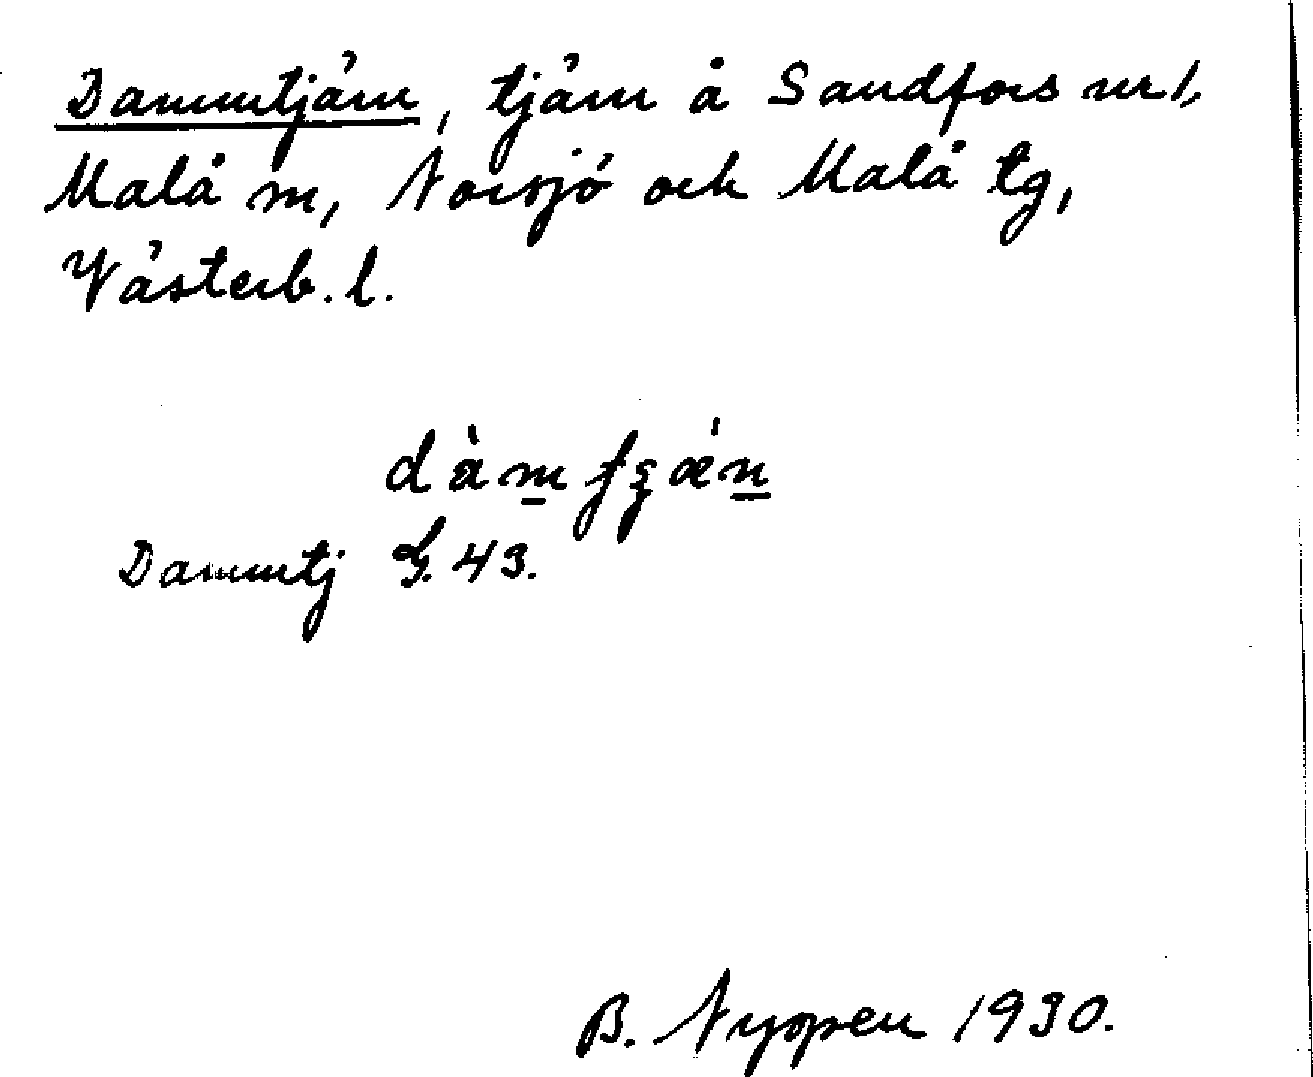 Dammtjärn, tjärn å Sandfors nr 1,
Malå sn, Norsjö och Malå tg,
Västerb. l.
Dammtj G. 43.
B. Nyspen 1930.